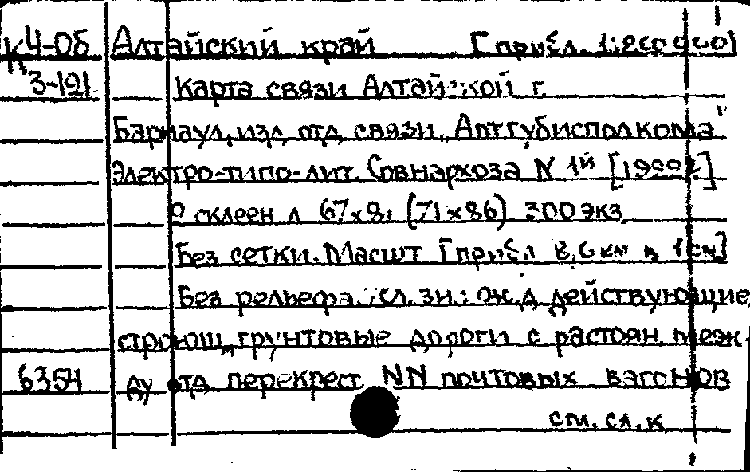 К4-05 Алтайский край [прибл. 1:860 000]
К 3-121 Карта связи Алтайской г.
Барнаул, изд. отд. связи „Алтгубисполкома"
Электро-типо-лит. Совнархоза N 1й
склеен л 67×8 (71×86) 300 экз.
Без сетки. Масшт [прибл 8,6 км в 1 см]
Без рельефа. Усл. зн.: ж. д действующие
строющ., грунтовые дороги с растоян. меж-
6354 ду отд перекрест NN почтовых вагонов
см. сл. к